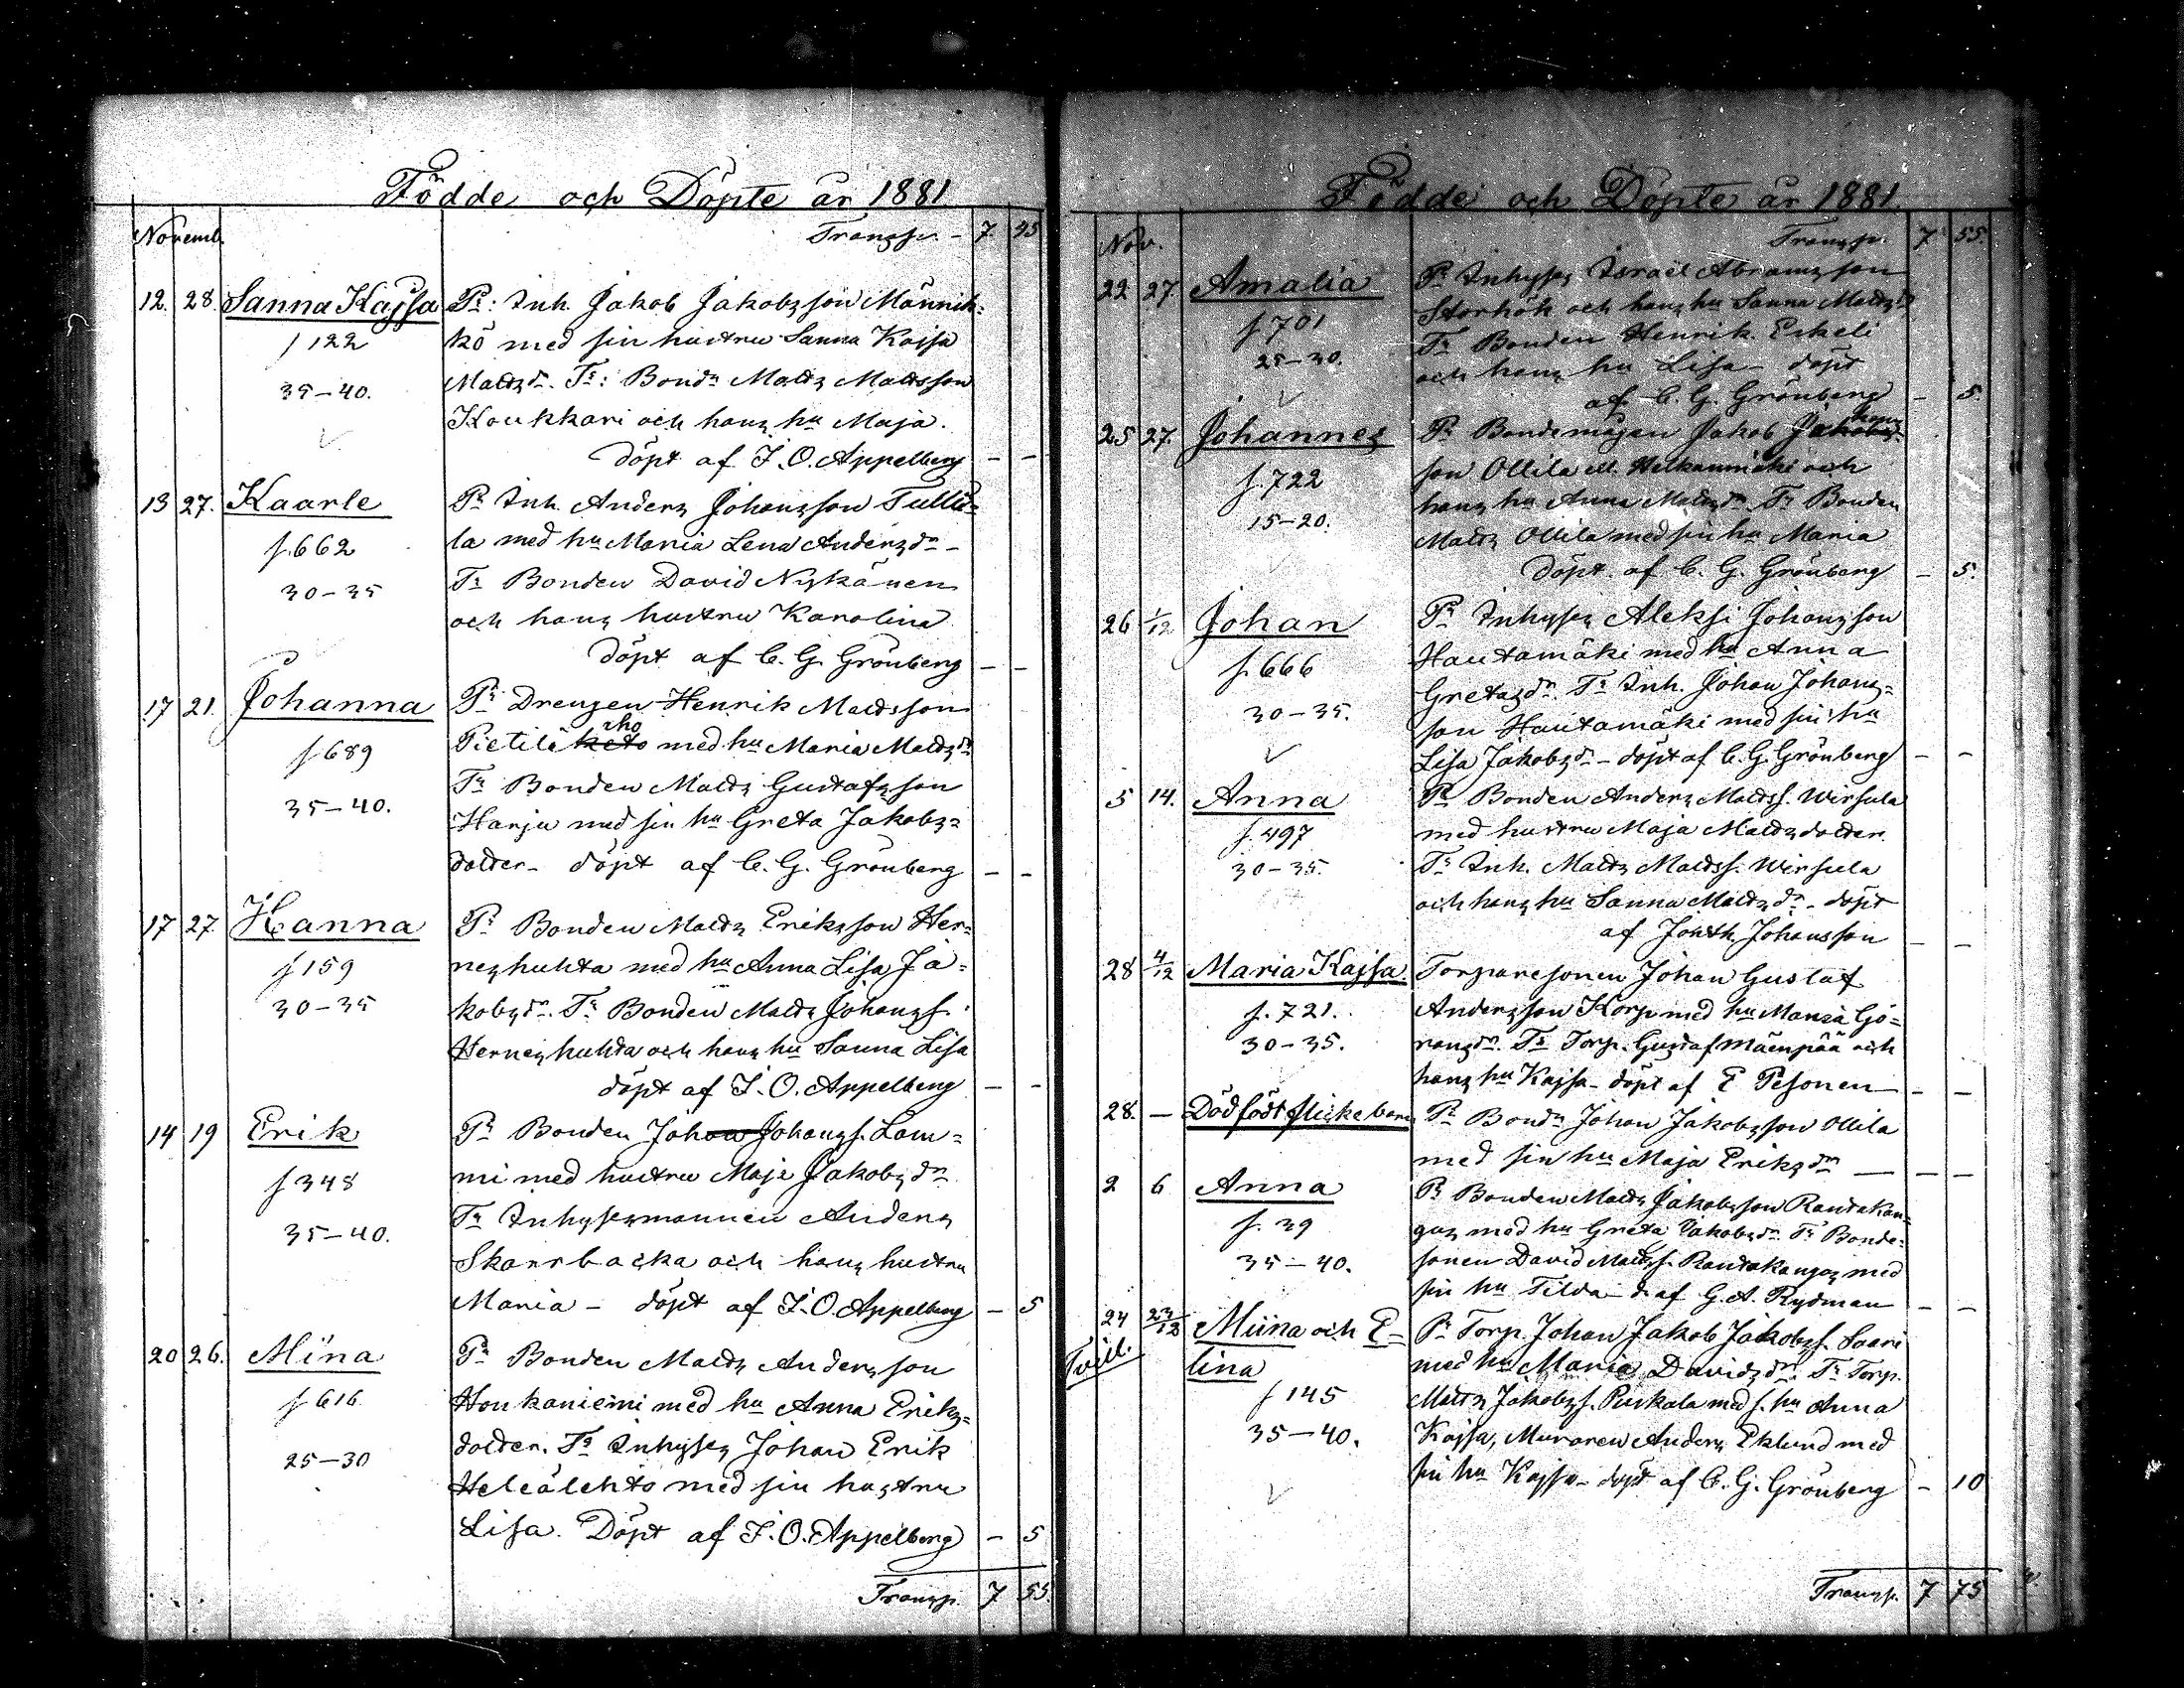 Födde och Döpte år 1881
Novemb. Transp. - 7. 45
12. 28. Sanna Kajsa Pr: Inh. Jakob Jakobsson Männik-
f 122 kö med sin hustru Sanna Kajsa
35-40. Mattsdr. Tr: Bondn Matts Mattsson
Koukkari och hans hu Maja.
döpt af J. O. Appelberg - -
13 27. Kaarle Pr Inh. Anders Johansson Tulli-
f. 662 la med hu Maria Lena Andersdr -
30-35 Tr Bonden David Nykänen
och hans hustru Karolina
döpt af C. G. Grönberg - -
17 21. Johanna Pr Drengen Henrik Mattsson
rho
f 689 Pietilä keto med hu Maria Mattsdr
Tr Bonden Matts Gustafsson
35-40. Harju med sin hu Greta Jakobs-
dotter - döpt af C. G. Grönberg - -
17 27 Hanna Pr Bonden Matts Eriksson Her-
f 159 neshuhta med hu Anna Lisa Ja-
30-35 kobsdr. Tr Bonden Matts Johanss.
Herneshuhta och hans hu Sanna Lisa
döpt af J. O. Appelberg - -
14 19 Erik Pr Bonden Johan Johanss. Lam-
f 348 mi med hustru Maja Jakobsdr
35-40. Tr Inhysesmannen Anders
Skarrbacka och hans hustru
Maria - döpt af J. O. Appelberg - 5
20 26. Miina Pr Bonden Matts Andersson
f 616 Honkaniemi med hu Anna Eriks-
dotter. Tr Inhyses Johan Erik
25-30 med sin hustru
Lisa. Döpt af J. O. Appelberg - 5
Transp. 7 55.
Födde och Döpte år 1881
Nov. Transp. 7 55.
22 27. Amalia Pr Inhyses Israel Abramsson
f. 701 Storhök och hans hu Sanna Mattsdr
25-30. Tr Bonden Henrik Erkeli
och hans hu Lisa - döpt
af C. G. Grönberg - 5.
25 27. Johannes Pr Bondemågen Jakob Jakobs-
f. 722 son Ollila ell. och
15-20. hans hu Anna Mattsdr. Tr Bonden
Matts Ollila med sin hu Maria
döpt af C. G. Grönberg - 5.
26 1/12 Johan Pr Inhyses Aleksi Johansson
f. 666 Hautamäki med hu Anna
Gretasdr. Tr Inh. Johan Johans-
30-35. son Hautamäki med sin hu
Lisa Jakobsdr - döpt af C. G. Grönberg - -
5 14. Anna Pr Bonden Anders Mattss. Wirsula
f. 497 med hustru Maja Mattsdotter.
30-35. Tr Inh. Matts Mattss. Wirsula
och hans hu Sanna Mattsdr - döpt
af Jonth. Johansson - -
28 4/12 Maria Kajsa. Torparesonen Johan Gustaf
f. 721. Andersson Korp med hu Maria Gö-
30-35. ransdr. Tr Torp. Gustaf Mäenpää och
hans hu Kajsa - döpt af E Pesonen - -
28. - Dödfödt flickebarn Pr Bondn Johan Jakobsson Ollila
med sin hu Maja Eriksdr - - -
2 6 Anna Pr Bonden Matts Jakobsson Rantakan-
f. 39 gas med hu Greta Jakobsdr. Tr Bonde-
35-40. sonen David Mattss. Rantakangas med
sin hu Tilda - d. af G. A. Rydman - -
24 23/12 Miina och E- Pr Torp. Johan Jakob Jakobss. Saari
Tvill. lina med hu Maria Davidsdr. Tr Torp.
f 145 Matts Jakobss. Puskala med s. hu Anna
35-40. Kajsa, Muraren Anders Eklund med
sin hu Kajsa - döpt af C. G. Grönberg - 10
Transp. 7 75